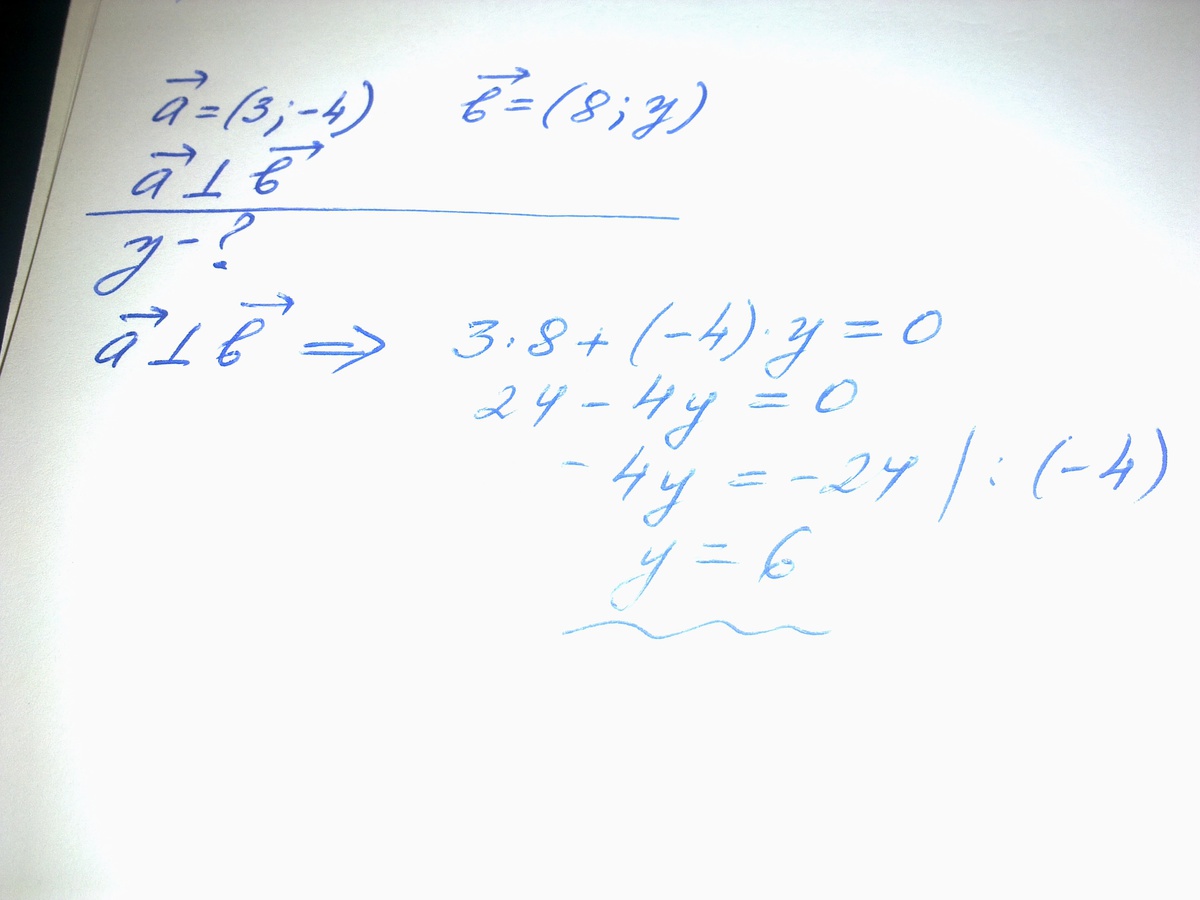 a⃗ = (3; -4) b⃗ = (8; y)
a⃗ ⊥ b⃗
y - ?
a⃗ ⊥ b⃗ ⇒ 3 · 8 + (-4) · y = 0
24 - 4y = 0
-4y = -24 | : (-4)
y = 6